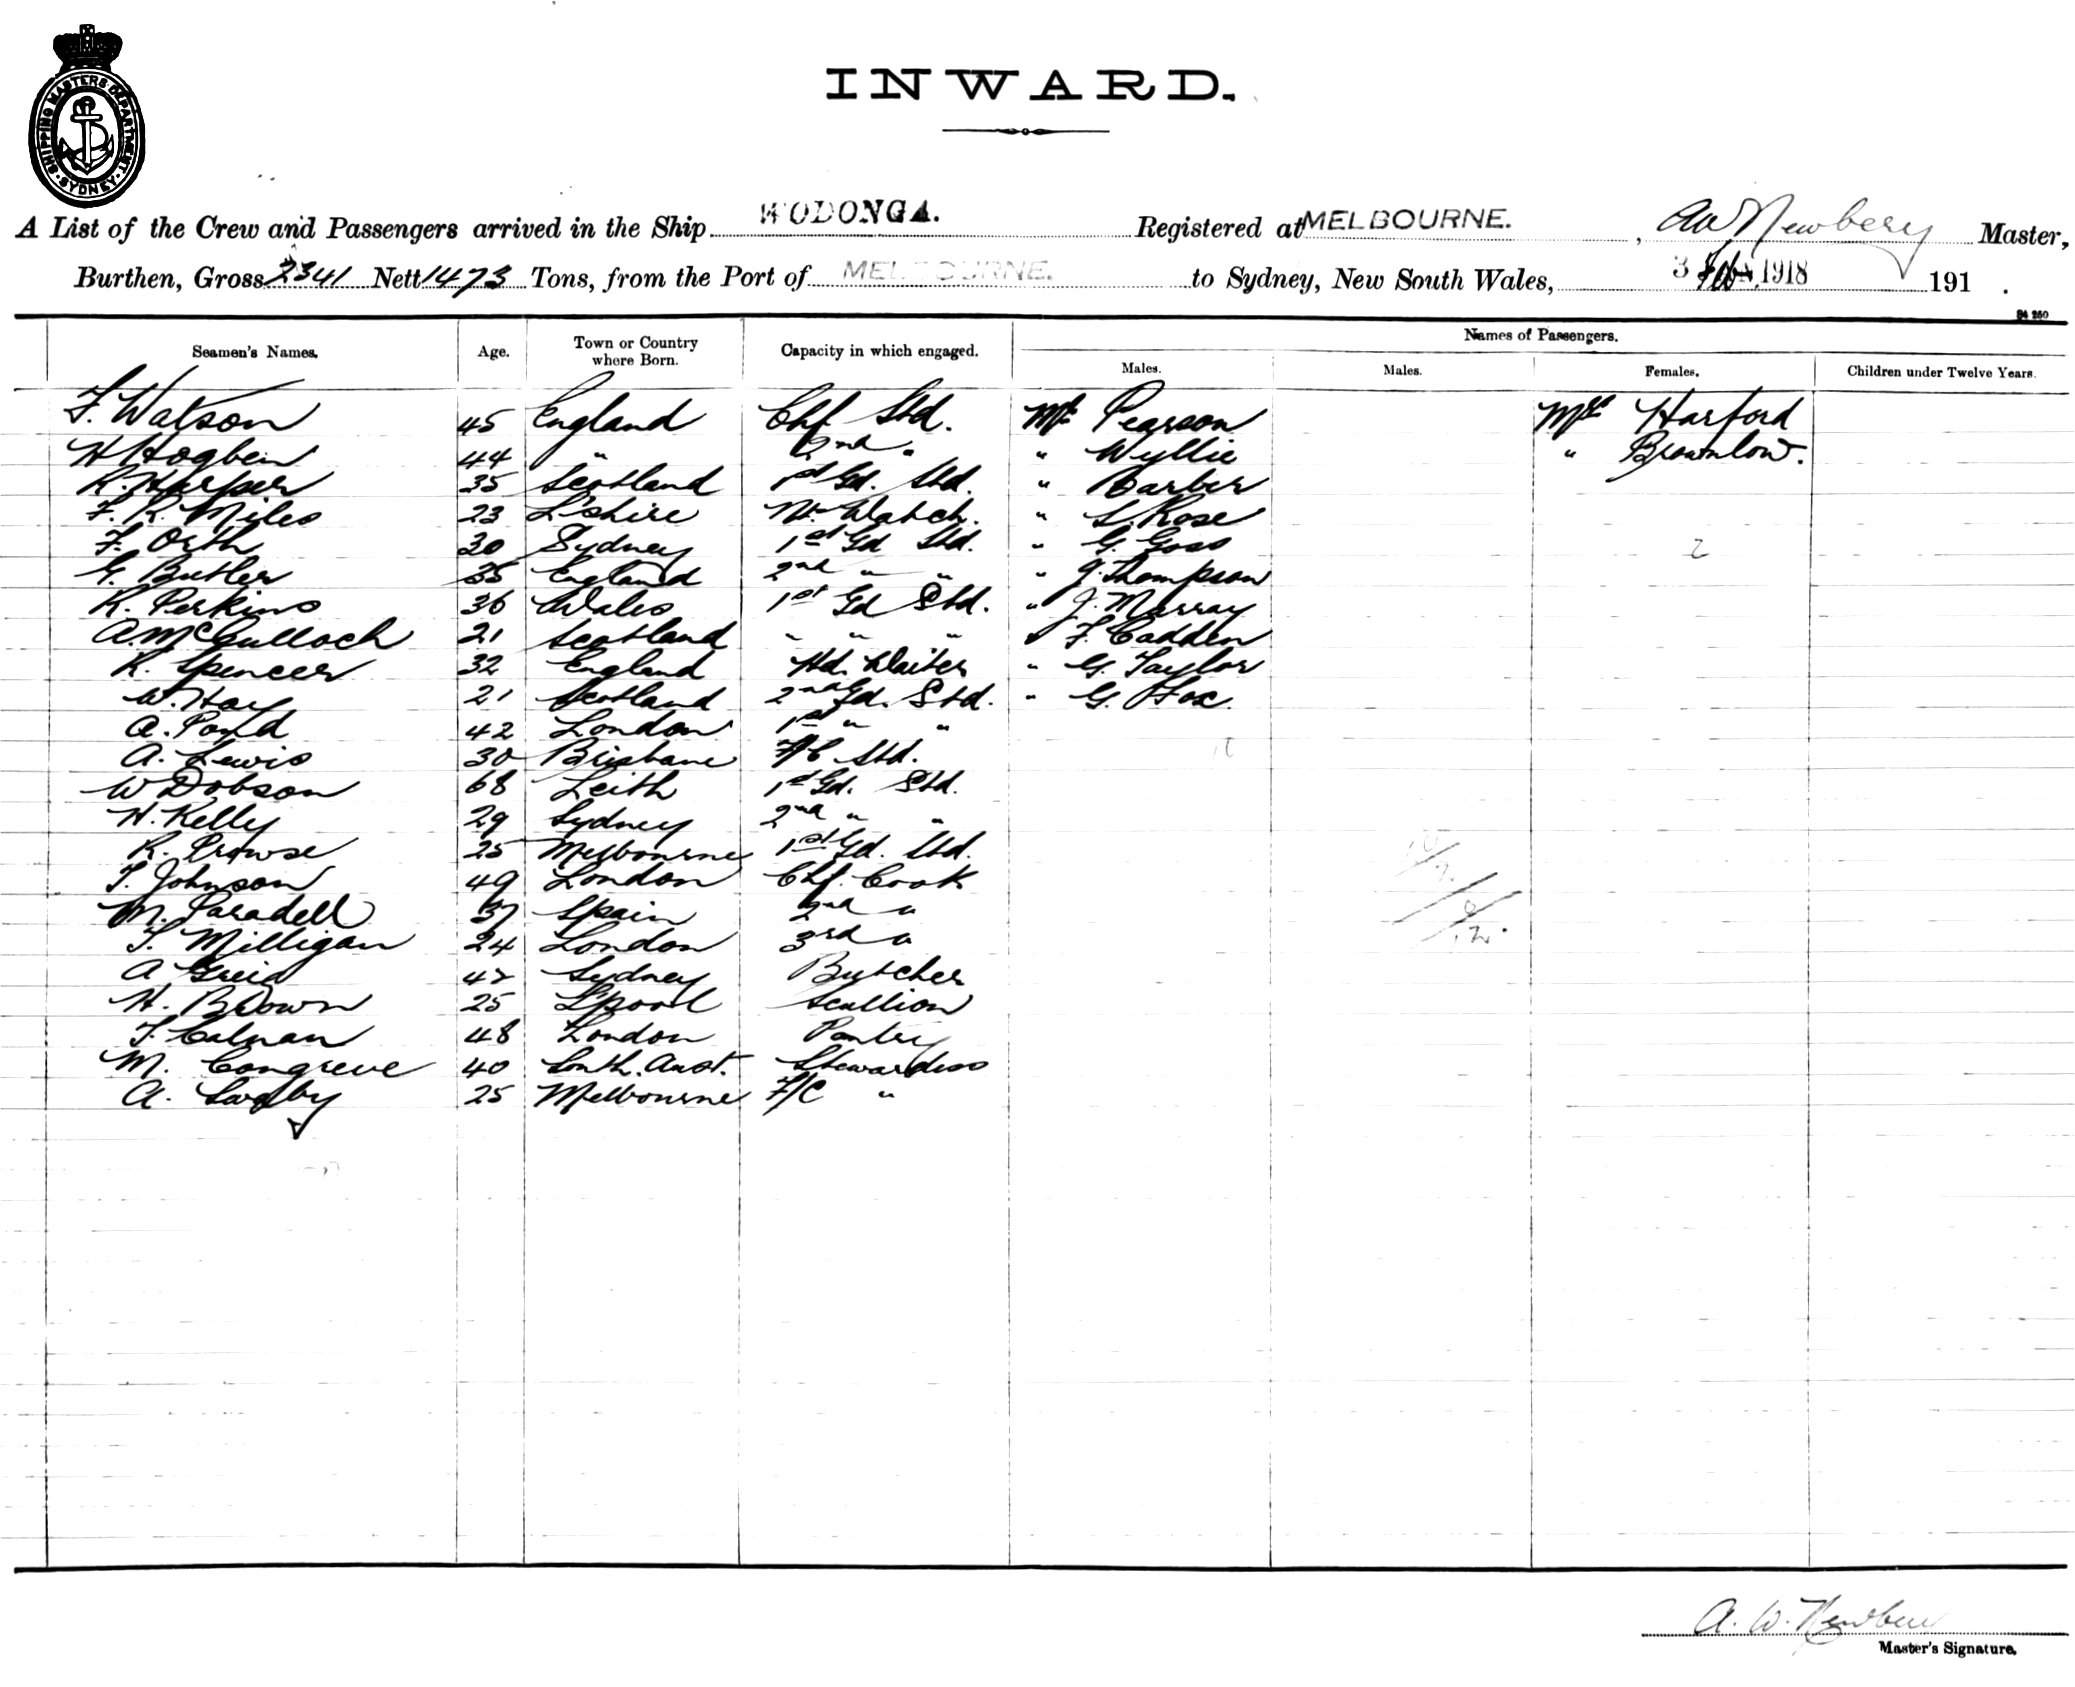 SHIPPING MASTERS DEPARTMENT · SYDNEY ·
INWARD.
A List of the Crew and Passengers arrived in the Ship WODONGA. Registered at MELBOURNE. , AW Newbery Master,
Burthen, Gross 2341 Nett 1473 Tons, from the Port of MELBOURNE. to Sydney, New South Wales, 3 Feb 1918 191 .
84 250
Seamen's Names. Age. Town or Country where Born. Capacity in which engaged. Names of Passengers.
Males. Males. Females. Children under Twelve Years.
F. Watson 45 England Chf Std. Mr Pearson Mrs Harford
H Hogben 44 " 2nd " " Wyllie " Brownlow.
R. Harper 35 Scotland 1st Gd. Std. " Barber
F. R. Miles 23 L'shire Nt. Watch. " S. Rose
F. Orth 30 Sydney 1st Gd Std. " G. Goss 2
G. Butler 35 England 2nd " " " J. Thompson
R. Perkins 36 Wales 1st Gd Std. " J. Murray
A. McCulloch 21 Scotland " " " " F. Cadden
R. Spencer 32 England Hd. Waiter " G. Taylor
W. Hay 21 Scotland 2nd Gd. Std. " G. Fox.
A. Pond 42 London 1st " "
A. Lewis 30 Brisbane F/C Std.
W Dobson 68 Leith 1st Gd. Std.
H. Kelly 29 Sydney 2nd " "
R. Prowse 25 Melbourne 1st Gd. Std.
T. Johnson 49 London Chf. Cook
M. Paradell 37 Spain 2nd "
T. Milligan 24 London 3rd "
A Greig Sydney Butcher
H. Brown 25 L'pool Scullion
T. Calnan 48 London Pantry
M. Congreve 40 South. Aust. Stewardess
A. 25 Melbourne F/C "
A. W. Newbery
Master's Signature.